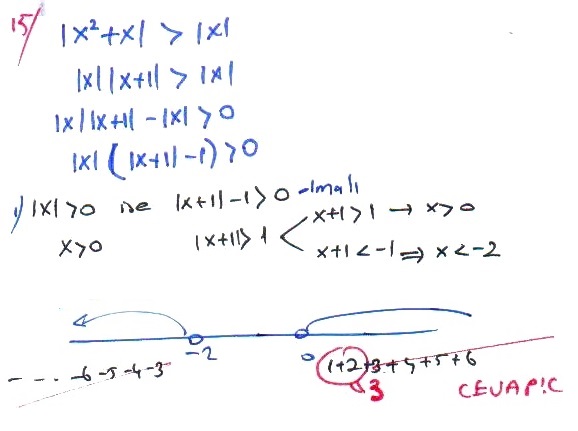 15/
|x²+x| > |x|
|x||x+1| > |x|
|x||x+1| - |x| > 0
|x| (|x+1| - 1) > 0
1) |x| > 0 ise |x+1| - 1 > 0 olmalı
x > 0 |x+1| > 1 x+1 > 1 → x > 0
x+1 < -1 ⇒ x < -2
-2 0
- - - . -6 -5 -4 -3 1+2+3+4+5+6
3 CEVAP: C